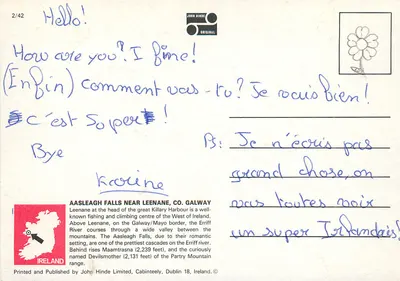 2/42
Hello!
JOHN HINDE
ORIGINAL
How are you? I fine!
(Enfin) comment vas-tu? Je vais bien!
c'est Soper!
Bye
Karine
PS: Je n'écris pas
grand chose, on
vas toutes voir
un super Irlandais!
AASLEAGH FALLS NEAR LEENANE, CO. GALWAY
Leenane at the head of the great Killary Harbour is a well-
known fishing and climbing centre of the West of Ireland.
Above Leenane, on the Galway/Mayo border, the Erriff
River courses through a wide valley between the
mountains. The Aasleagh Falls, due to their romantic
setting, are one of the prettiest cascades on the Erriff river.
Behind rises Maamtrasna (2,239 feet), and the curiously
named Devilsmother (2,131 feet) of the Partry Mountain
range.
IRELAND
Printed and Published by John Hinde Limited, Cabinteely, Dublin 18, Ireland. ©